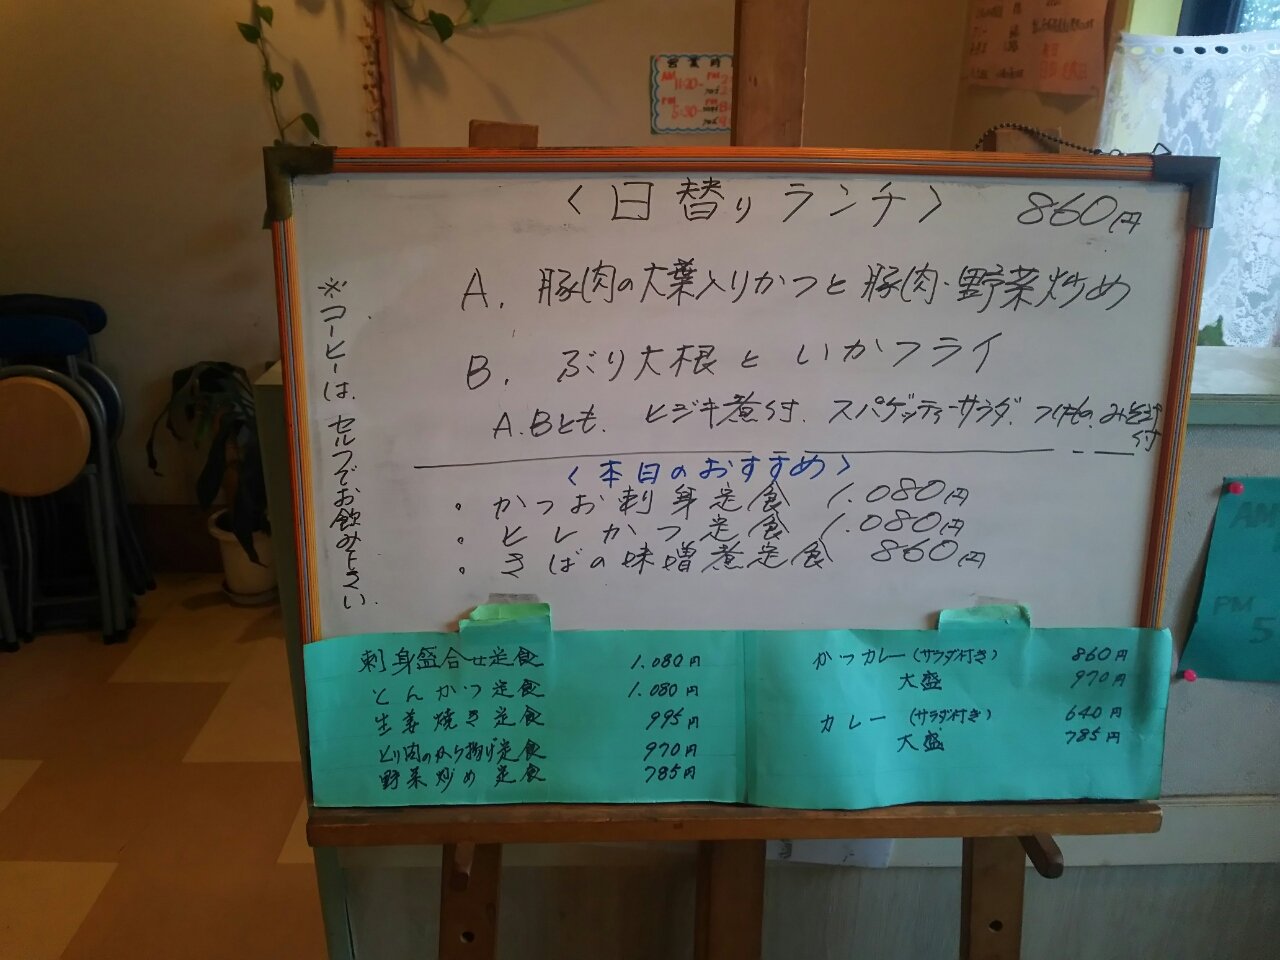 営業時
AM 11:20-PM 2
PM 5:30-PM 8
〈日替りランチ〉 860円
A. 豚肉の大葉入りかつと豚肉・野菜炒め
B. ぶり大根といかフライ
A.Bとも、ヒジキ煮付、スパゲッティーサラダ、つけもの、みそ汁付
※コーヒーは、セルフでお飲み下さい。
〈本日のおすすめ〉
・かつお刺身定食 1.080円
・ヒレかつ定食 1.080円
・さばの味噌煮定食 860円
刺身盛合せ定食 1.080円
とんかつ定食 1.080円
生姜焼き定食 995円
とり肉のから揚げ定食 970円
野菜炒め定食 785円
かつカレー(サラダ付き) 860円
大盛 970円
カレー(サラダ付き) 640円
大盛 785円
AM
PM
5